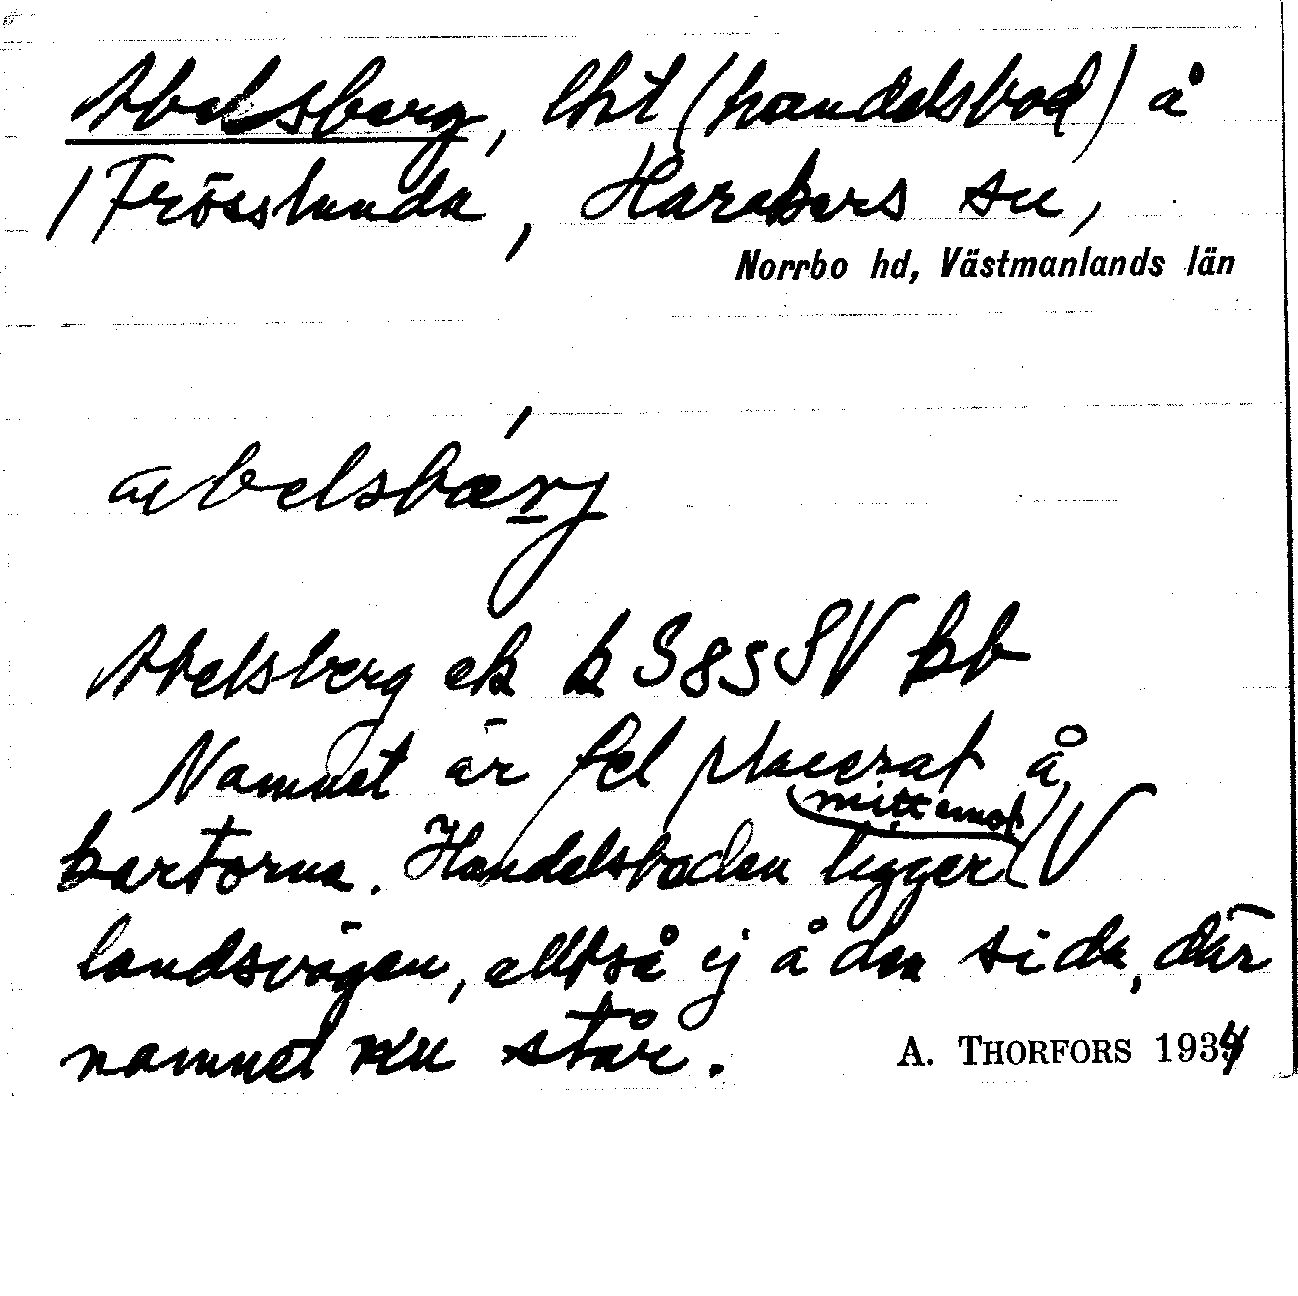 Abelsberg, lht (handelsbod) å
/ Frösslunda, Harakers sn,
Norrbo hd, Västmanlands län
abelsbærj
Abelsberg ek k 385 SV kb
Namnet är fel placerat å
mitt emot
kartorna. Handelsboden ligger V
landsvägen, alltså ej å den sida, där
namnet nu står.
A. THORFORS 1934